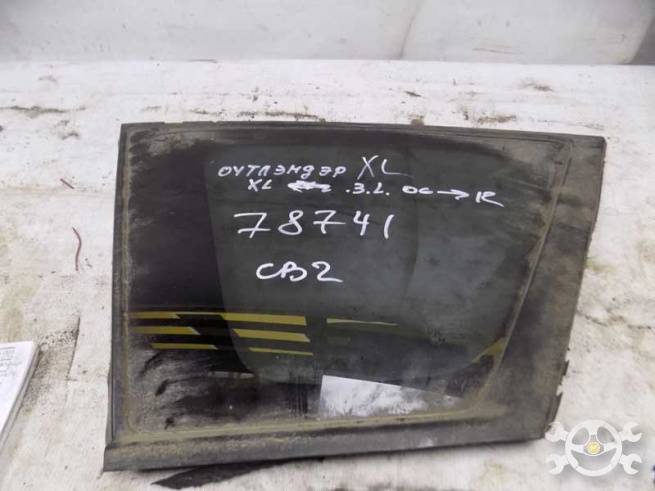 ОУТЛЭНДЭР XL
XL ← .З.L. ОС → R
78741
СВ2